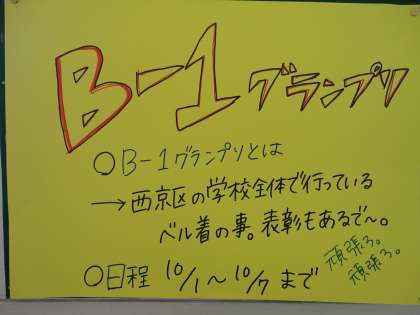 B-1グランプリ
○B-1グランプリとは
→西京区の学校全体で行っている
ベル着の事。表彰もあるで〜。
○日程 10/1〜10/7まで
頑張ろ。
頑張ろ。